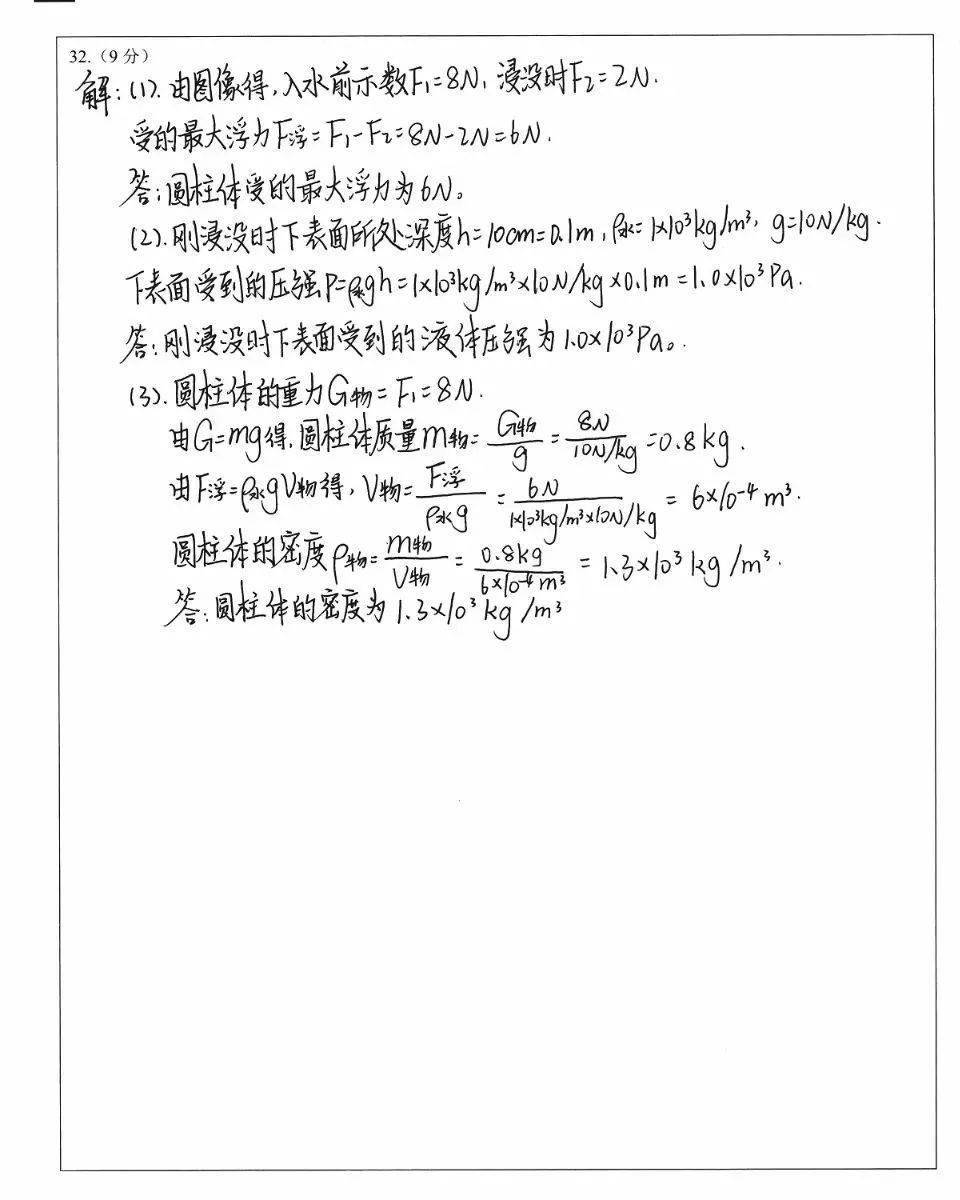 32.（9 分）
解：(1). 由图像得，入水前示数F₁=8N，浸没时F₂=2N.
受的最大浮力F浮=F₁-F₂=8N-2N=6N.
答：圆柱体受的最大浮力为6N。
(2). 刚浸没时下表面所处深度h=10cm=0.1m，ρ水=1×10³kg/m³，g=10N/kg.
下表面受到的压强P=ρ水gh=1×10³kg/m³×10N/kg×0.1m=1.0×10³Pa.
答：刚浸没时下表面受到的液体压强为1.0×10³Pa。
(3). 圆柱体的重力G物=F₁=8N.
由G=mg得，圆柱体质量m物=G物/g=8N/10N/kg=0.8kg.
由F浮=ρ水gV物得，V物=F浮/ρ水g=6N/1×10³kg/m³×10N/kg=6×10⁻⁴m³.
圆柱体的密度ρ物=m物/V物=0.8kg/6×10⁻⁴m³=1.3×10³kg/m³.
答：圆柱体的密度为1.3×10³kg/m³